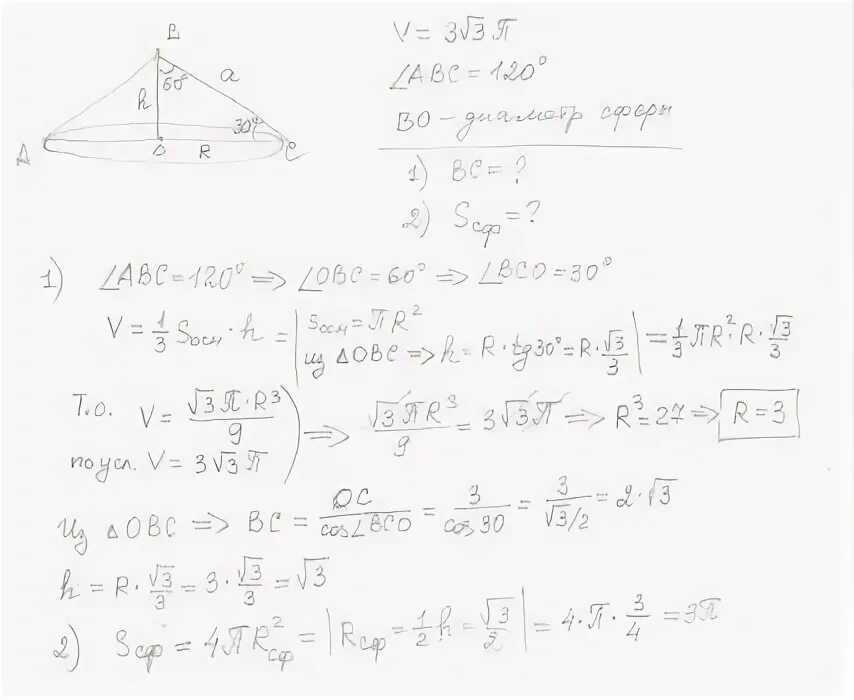 B
60° a
h
30°
A O R C
V = 3√3 π
∠ABC = 120°
BO - диаметр сферы
1) BC = ?
2) Sсф = ?
1) ∠ABC = 120° => ∠OBC = 60° => ∠BCO = 30°
V = 1/3 Sосн · h = | Sосн = πR² из △OBC => h = R · tg 30° = R · √3/3 | = 1/3 πR² · R · √3/3
Т.о. V = √3 π · R³/9
по усл. V = 3√3 π ) => √3 πR³/9 = 3√3 π => R³ = 27 => R = 3
Из △OBC => BC = OC/cos∠BCO = 3/cos 30 = 3/(√3/2) = 2·√3
h = R · √3/3 = 3 · √3/3 = √3
2) Sсф = 4πR²сф = | Rсф = 1/2 h = √3/2 | = 4·π·3/4 = 3π